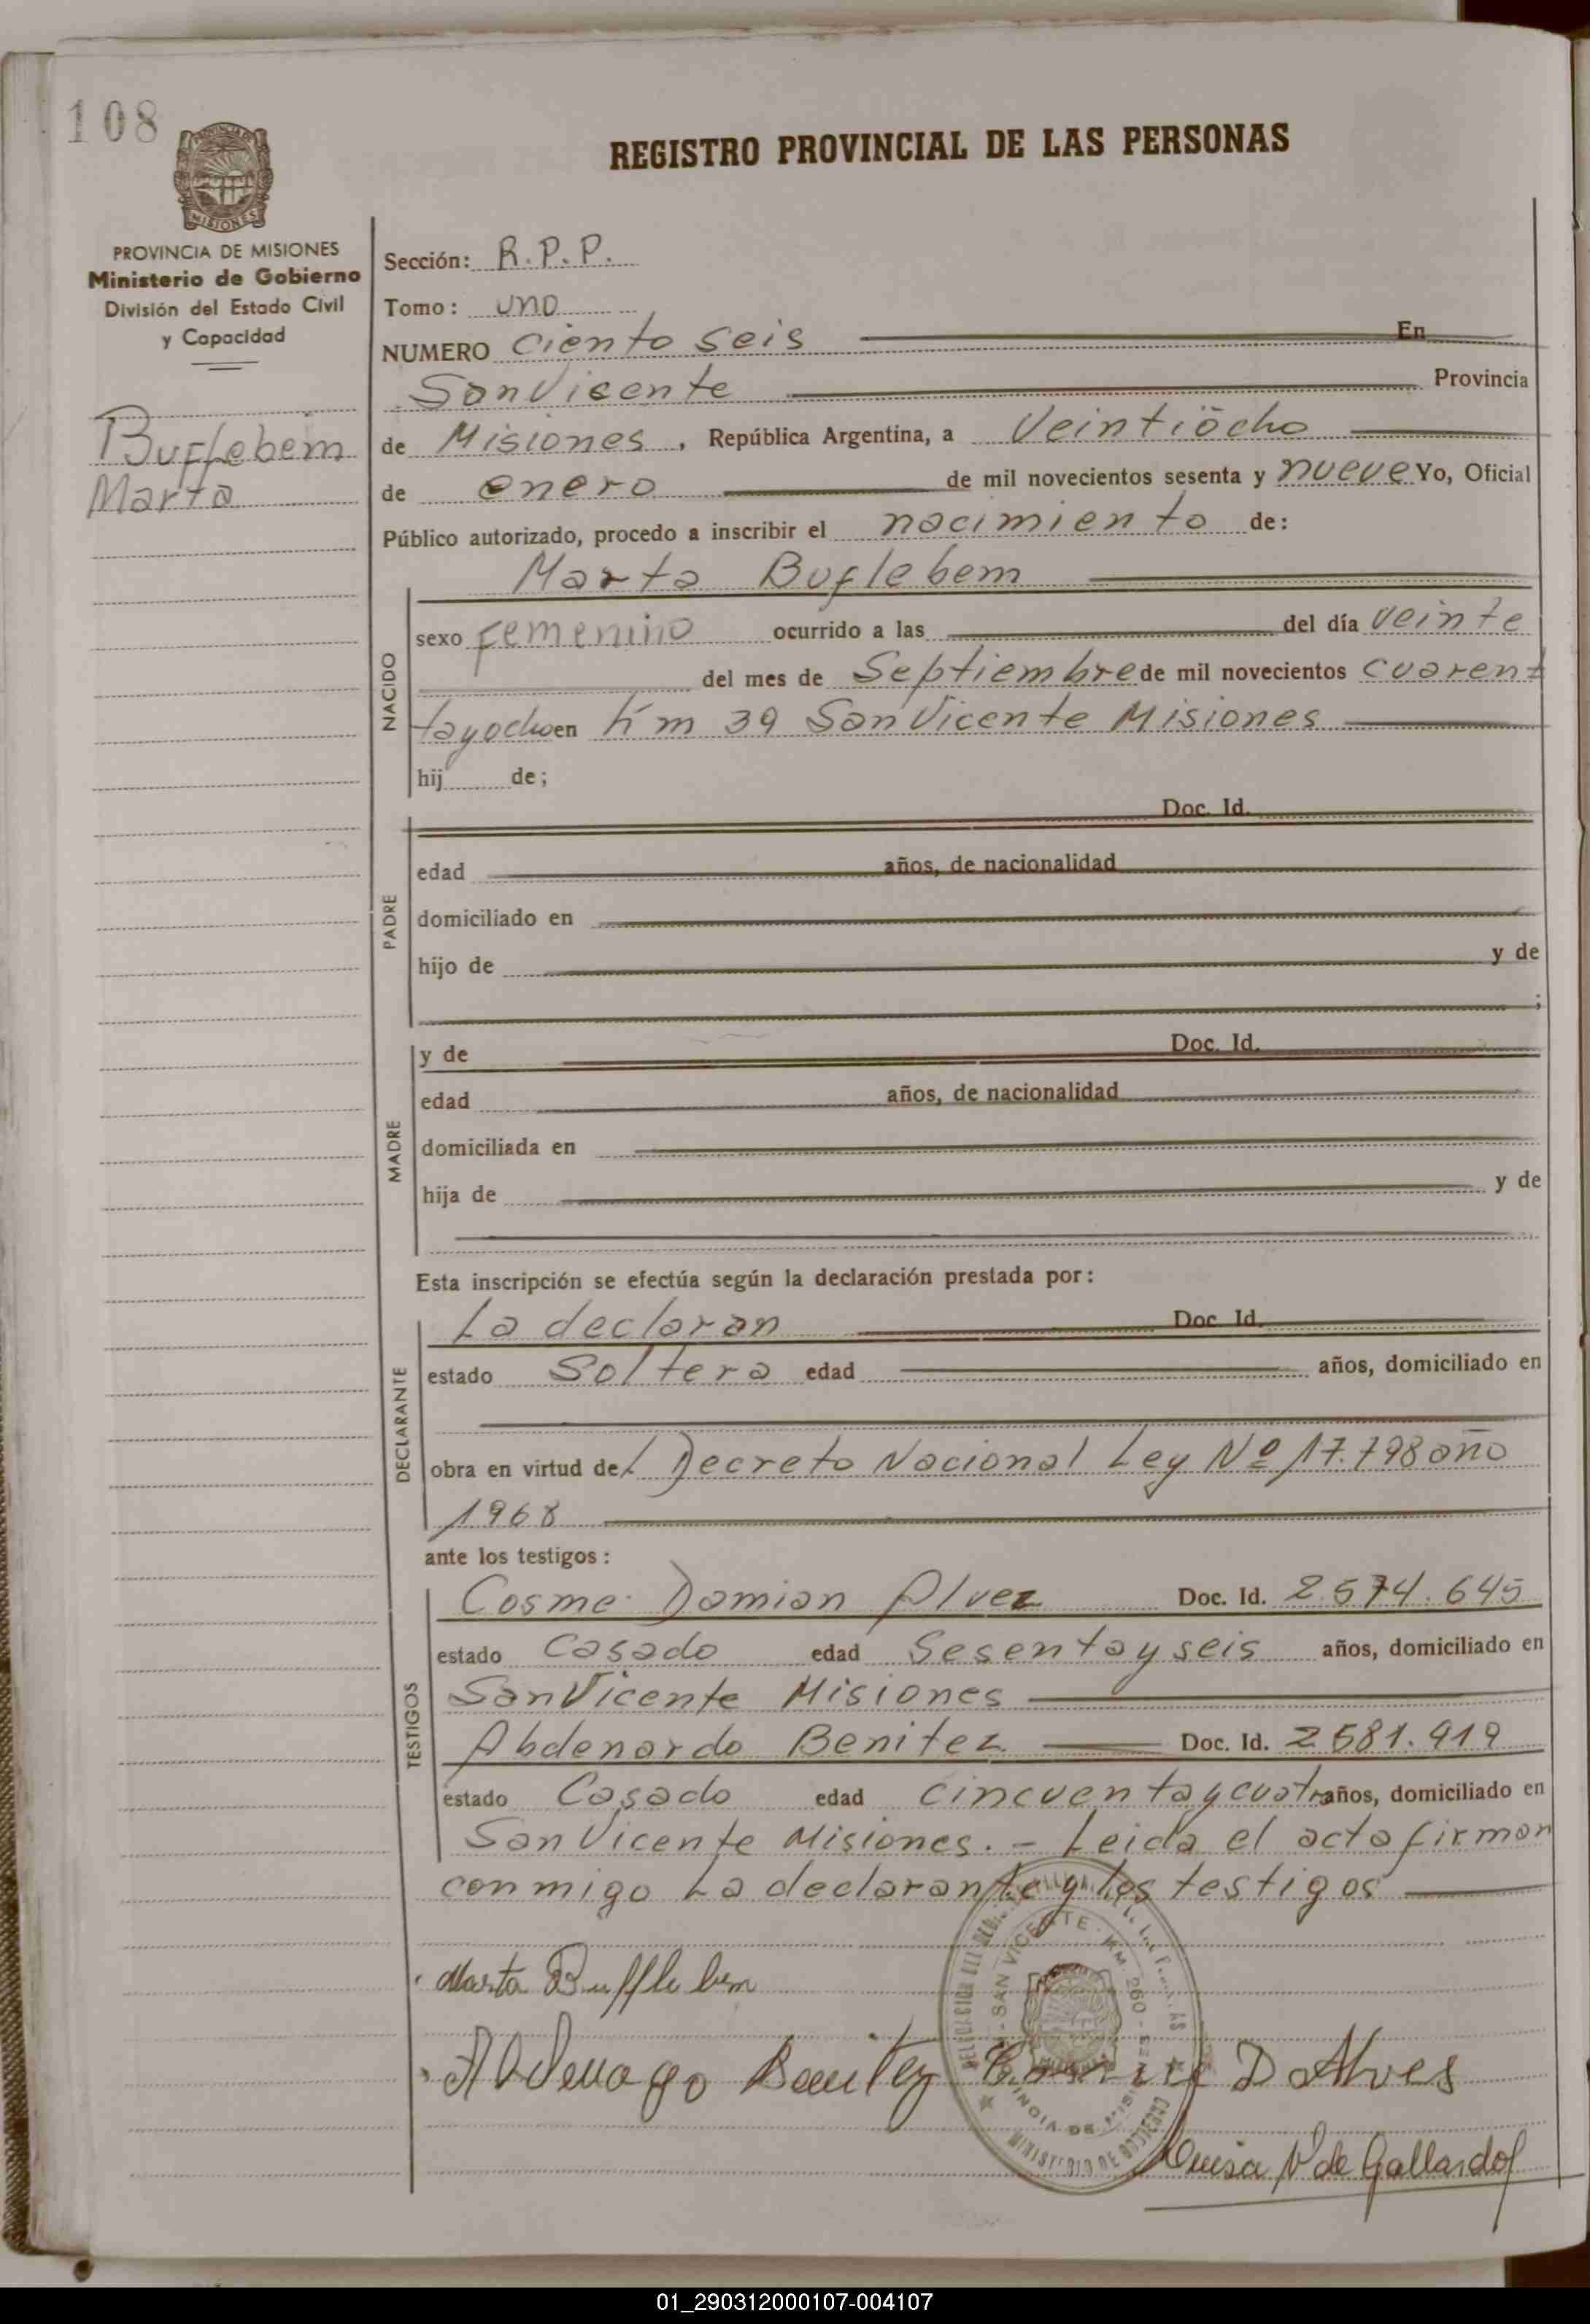 108
REGISTRO PROVINCIAL DE LAS PERSONAS
PROVINCIA DE MISIONES
Ministerio de Gobierno
División del Estado Civil
y Capacidad
Bufflebem
Marta
Sección: R.P.P.
Tomo: uno
NUMERO ciento seis En
San Vicente Provincia
de Misiones, República Argentina, a Veintiocho
de enero de mil novecientos sesenta y nueve Yo, Oficial
Público autorizado, procedo a inscribir el nacimiento de:
Marta Buflebem
NACIDO
sexo Femenino ocurrido a las del día veinte
del mes de Septiembre de mil novecientos cuaren
tayocho en Km 39 San Vicente Misiones
hij de;
PADRE
Doc. Id.
edad años, de nacionalidad
domiciliado en
hijo de y de
;
MADRE
y de Doc. Id.
edad años, de nacionalidad
domiciliada en
hija de y de
Esta inscripción se efectúa según la declaración prestada por:
DECLARANTE
La declaran Doc. Id.
estado Soltera edad años, domiciliado en
obra en virtud del Decreto Nacional Ley Nº 17.798 año
1968
ante los testigos:
TESTIGOS
Cosme Damian Alvez Doc. Id. 2.574.645
estado Casado edad Sesenta y seis años, domiciliado en
San Vicente Misiones
Abdenardo Benitez Doc. Id. 2581.919
estado Casado edad cincuenta y cuatro años, domiciliado en
San Vicente Misiones. - Leida el acta firman
conmigo La declarante y los testigos
Marta Bufflebem
SAN VICENTE - KM 260
PROVINCIA DE MISIONES
MINISTERIO DE GOBIERNO
Abdenago Benitez Cosme D Alves
Luisa V de Gallardo
01_290312000107-004107